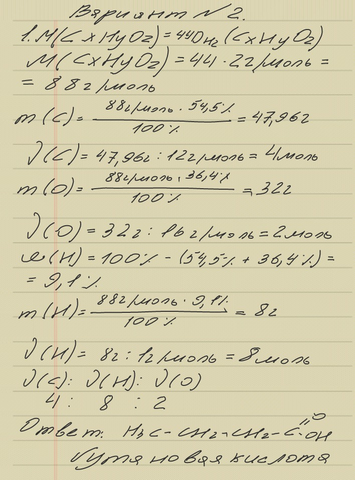 Вариант №2.
1. M(CxHyOz) = 44DH₂(CxHyOz)
M(CxHyOz) = 44 · 2г/моль =
= 88г/моль
m(C) = 88г/моль · 54,5% / 100% = 47,96г
ν(C) = 47,96г : 12г/моль = 4моль
m(O) = 88г/моль · 36,4% / 100% = 32г
ν(O) = 32г : 16г/моль = 2моль
ω(H) = 100% - (54,5% + 36,4%) =
= 9,1%
m(H) = 88г/моль · 9,1% / 100% = 8г
ν(H) = 8г : 1г/моль = 8моль
ν(C) : ν(H) : ν(O)
4 : 8 : 2
Ответ: H₃C-CH₂-CH₂-C=O OH
бутановая кислота